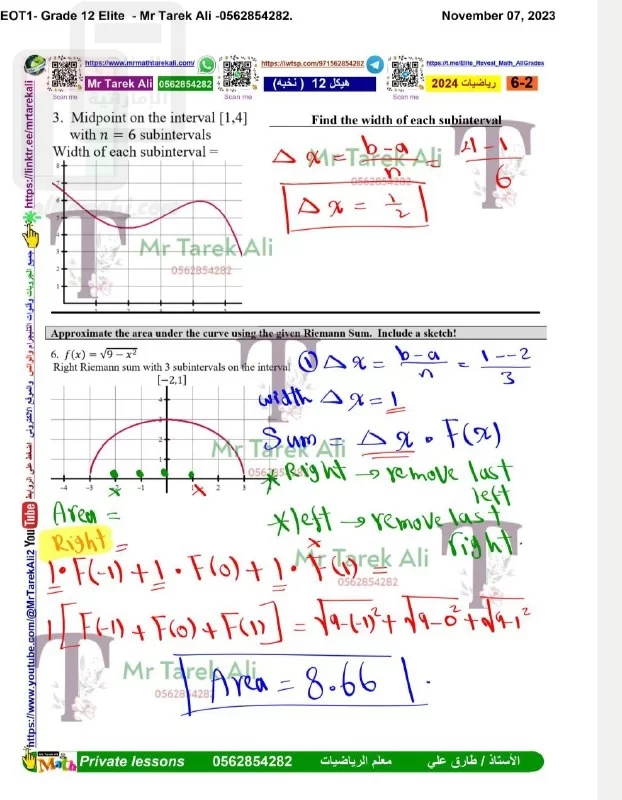 EOT1- Grade 12 Elite - Mr Tarek Ali -0562854282.
November 07, 2023
https://www.mrmathtarekali.com/
https://iwtsp.com/971562854282
https://t.me/Elite_Reveal_Math_AllGrades
Mr Tarek Ali 0562854282
هيكل 12 ( نخبه)
رياضيات 2024
6-2
Scan me
Scan me
Scan me
3. Midpoint on the interval [1,4]
with n = 6 subintervals
Width of each subinterval =
Find the width of each subinterval
Δx = b-a/n = 4-1/6
Δx = 1/2
Mr Tarek Ali
0562854282
Mr Tarek Ali
0562854282
Approximate the area under the curve using the given Riemann Sum. Include a sketch!
6. f(x) = √9 − x²
Right Riemann sum with 3 subintervals on the interval
[−2,1]
① Δx = b-a/n = 1--2/3
width Δx = 1
Sum = Δx • F(x)
* Right → remove last
left
* left → remove last
right.
Mr Tarek Ali
Area =
Right =
1•F(-1) + 1•F(0) + 1•F(1) =
x
1[F(-1) + F(0) + F(1)] = √9-(-1)² + √9-0² + √9-1²
Mr Tarek Ali
0562854282
Area = 8.66
Mr Tarek Ali
0562854282
https://linktr.ee/mrtarekali
https://www.youtube.com/@MrTarekAli2 YouTube
Math
Private lessons 0562854282 معلم الرياضيات الأستاذ / طارق علي